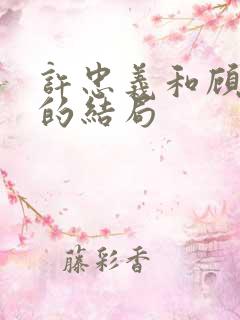 許忠義和顧
的結局
藤彩香